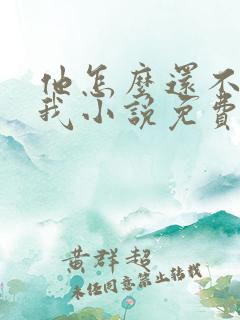 他怎麼還不
我小說免費
黃群超
未經同意禁止轉載